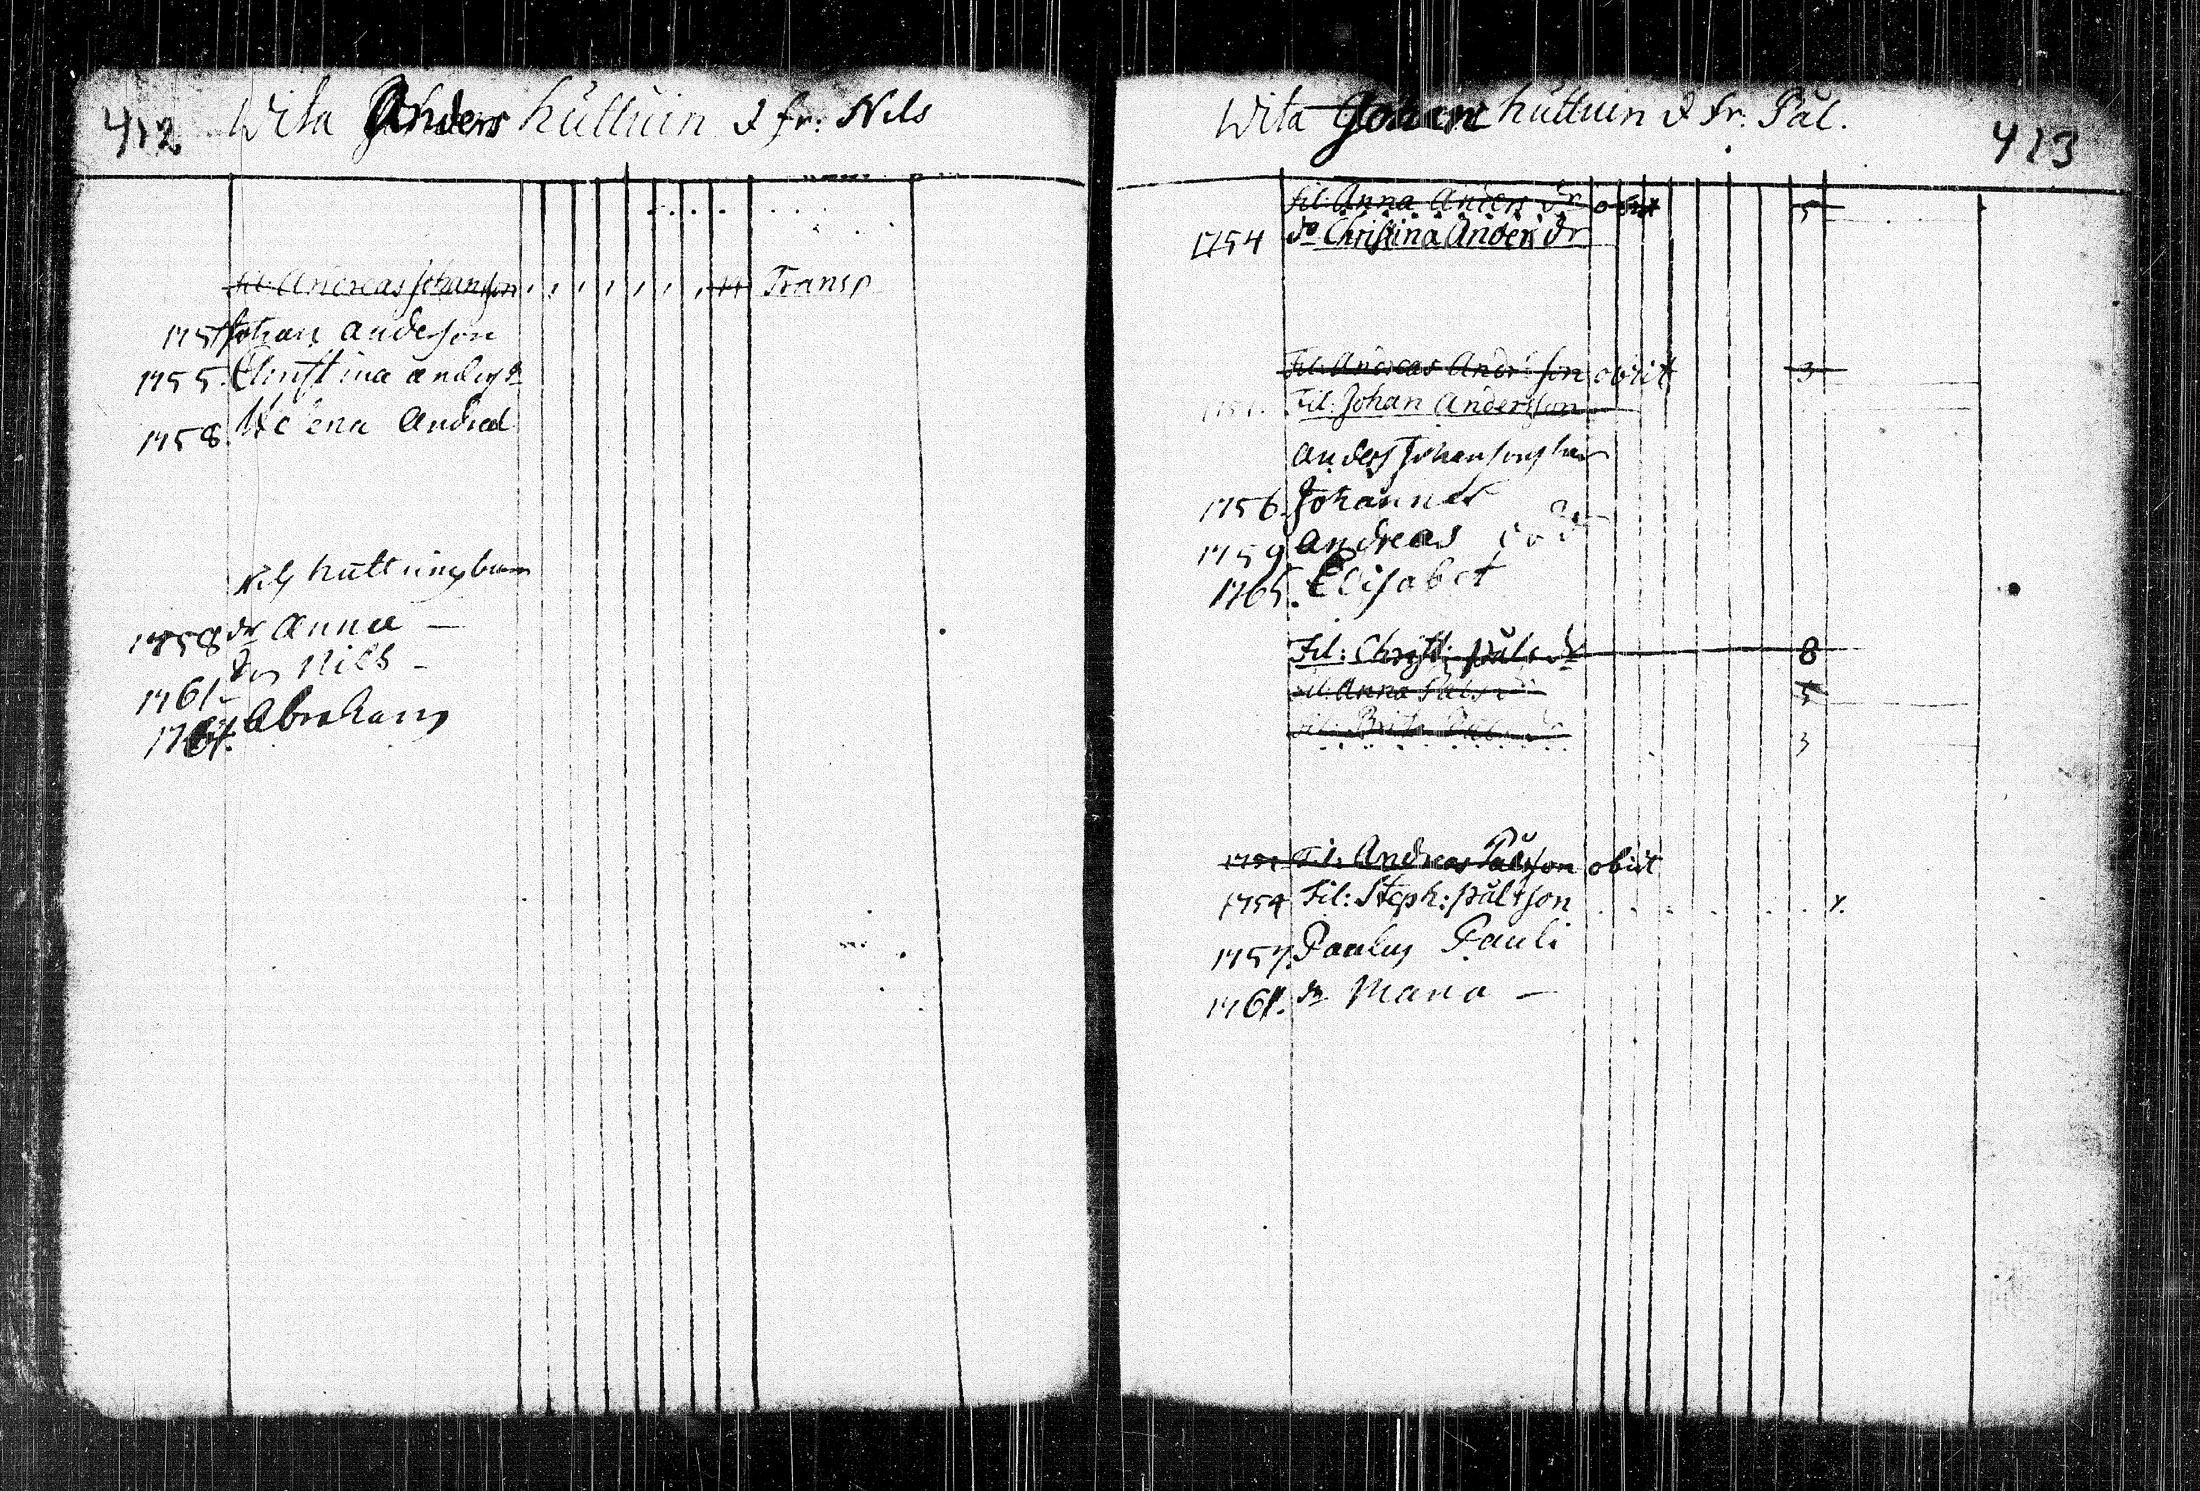 412 Wita Anders huttuin & fr: Nils
fil: Andreas Johansson 11 Transp
1751 Johan Andersson
1755. Christina
1758. Helena
Nils huttuings barn
1758 dr Anna —
1761 Nils -
1767. Abraham
Wita Johan huttuin & fr. Pål. 413
fil: Anna Anders dr obiit 5
1754 do Christina Anders dr
Fil: Andreas Anders son obiit 3
Fil. Johan Andersson
Anders Johanssons barn
1756. Johannes
1759 Andreas
1765. Elisabet
Fil: Christ: Påls dr 8
Fil: Anna Påls dr 5
Fil: Brita Påls dr 3
Fil: Andreas Pålsson obiit
1754 Fil: Steph: Pålsson
1757. Paulus Pauli
1761. dr Maria —